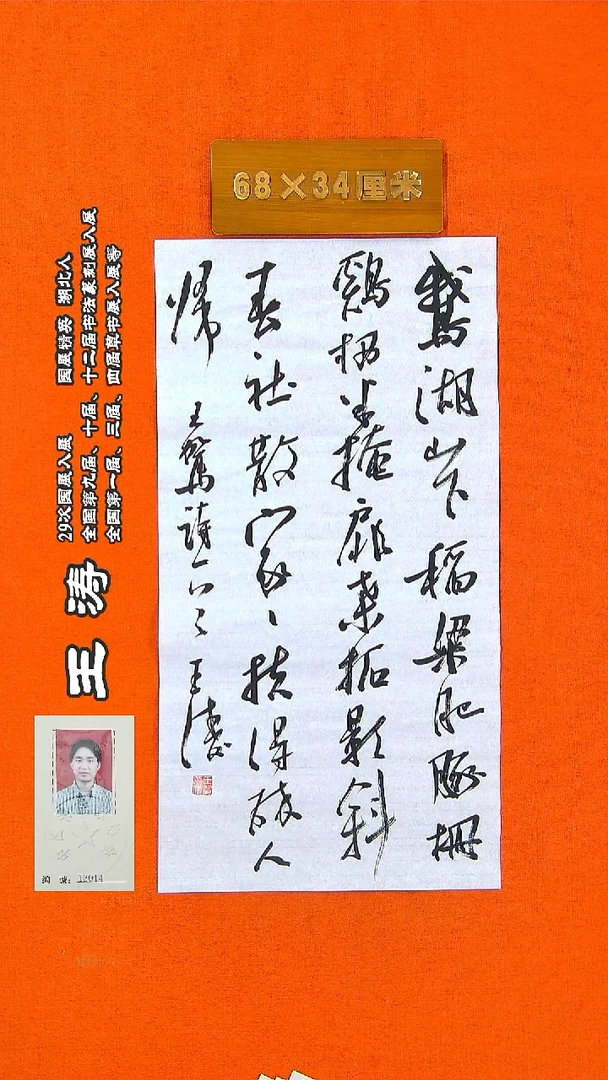 68×34厘米
鵝湖山下稻粱肥豚柵
鷄栖半掩扉桑柘影斜
春社散家々扶得醉人
歸 王駕詩 王濤
王涛
29次国展入展 国展精英 湖北人
全国第九届、十届、十二届书法篆刻展入展
全国第一届、三届、四届草书展入展等
12014